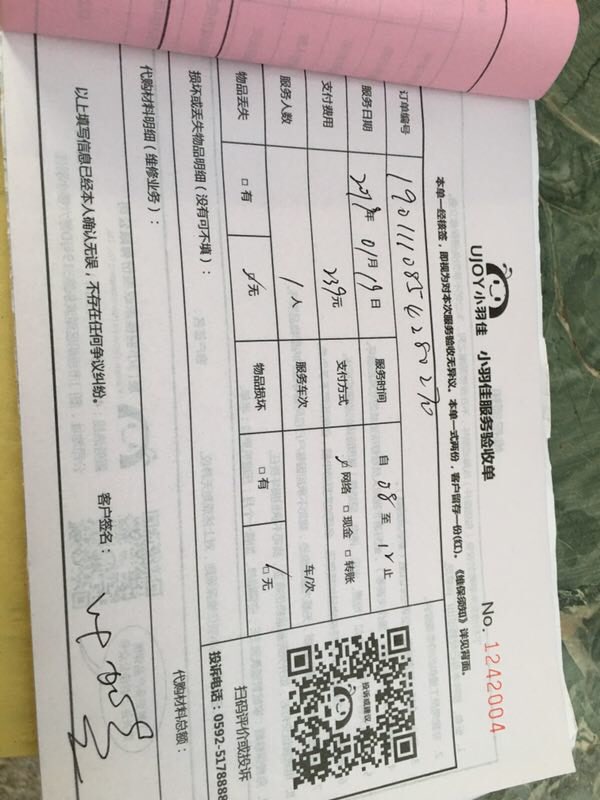 UJOY小羽佳 小羽佳服务验收单 No. 1242004
本单一经核签，即视为对本次服务验收无异议。本单一式两份，客户留存一份(红)。《维保须知》详见背面。
订单编号 1901110854280270
服务日期 2019年01月19日 服务时间 自 08 至 12 止
支付费用 239元 支付方式 ☑网络 □现金 □转账
服务人数 1人 服务车次 车/次
物品丢失 □有 ☑无 物品损坏 □有 ☑无
投诉或建议
扫码评价或投诉
投诉电话：0592-5178888
损坏或丢失物品明细（没有可不填）：
代购材料明细（维修业务）： 代购材料总额：
以上填写信息已经本人确认无误，不存在任何争议纠纷。 客户签名：